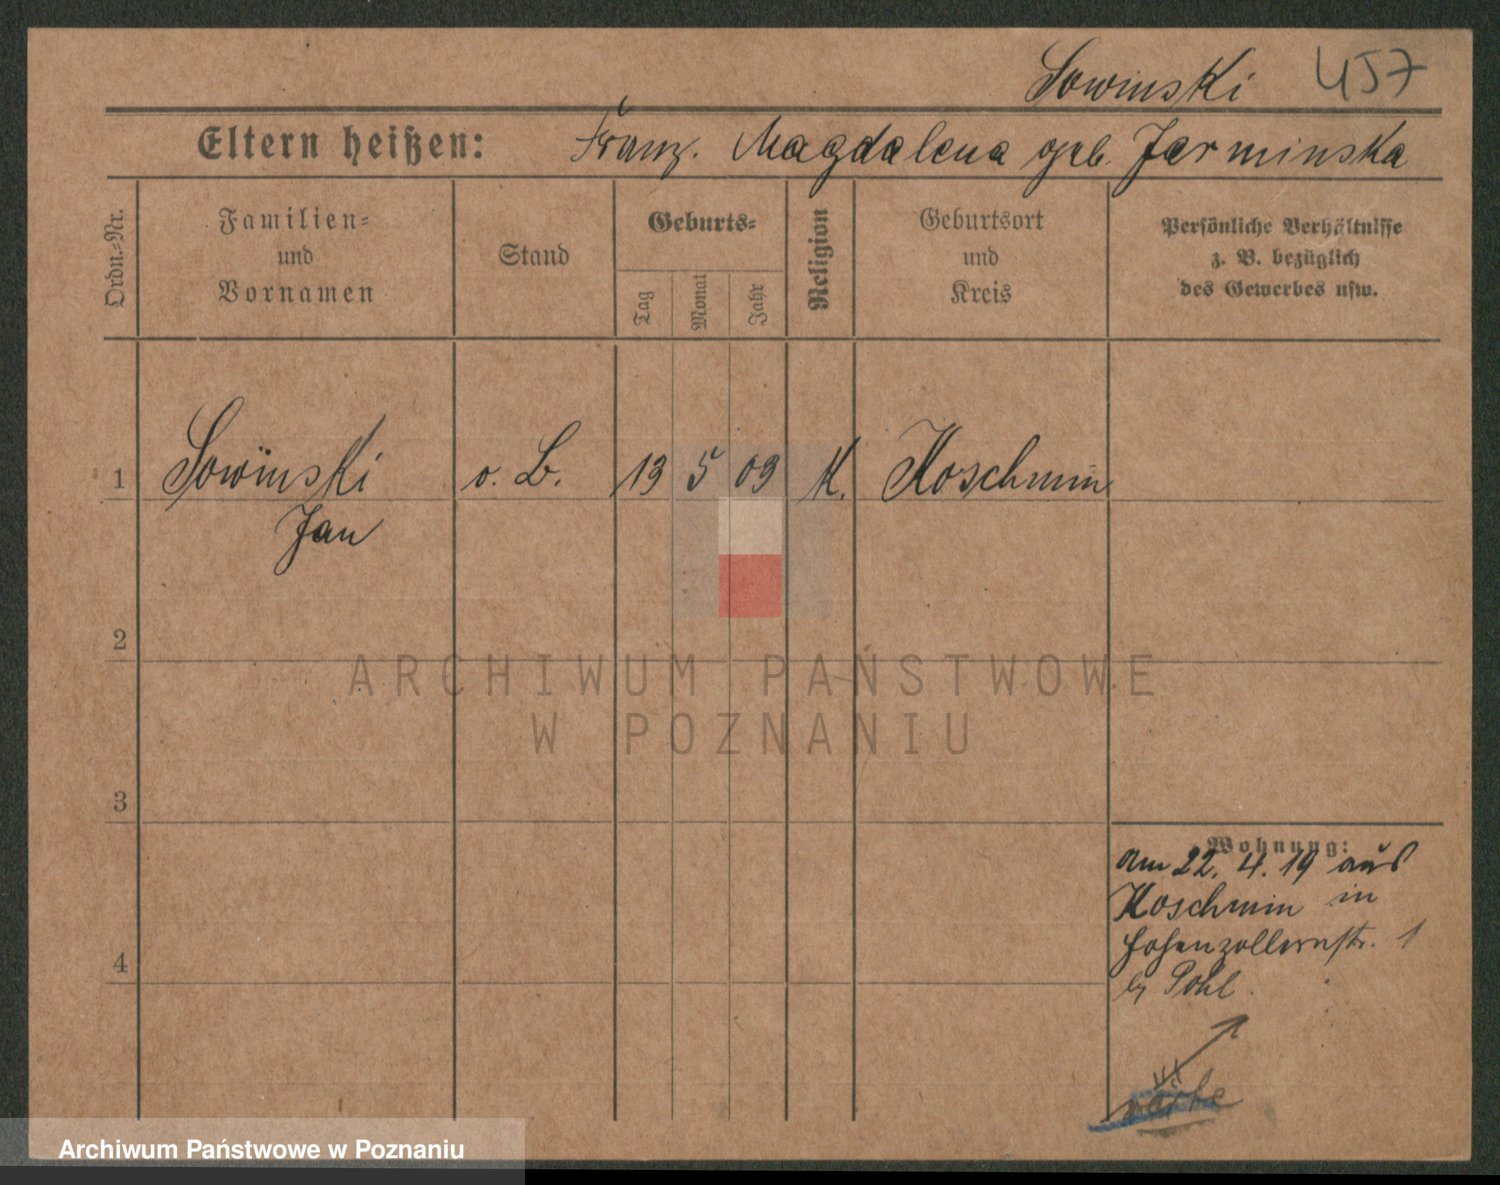 Sowinski 457
Eltern heißen: Franz. Magdalena geb. Jarminska
Ordn.-Nr.
Familien-
und
Vornamen
Stand
Geburts-
Tag
Monat
Jahr
Religion
Geburtsort
und
Kreis
Persönliche Verhältnisse
z. B. bezüglich
des Gewerbes usw.
1 Sowinski o. B. 13 5 09 K. Koschmin
Jan
2
ARCHIWUM PAŃSTWOWE
W POZNANIU
3
Wohnung:
am 22. 4. 19 aus
Koschmin in
Hohenzollernstr. 1
4
b/ Pohl.
Archiwum Państwowe w Poznaniu